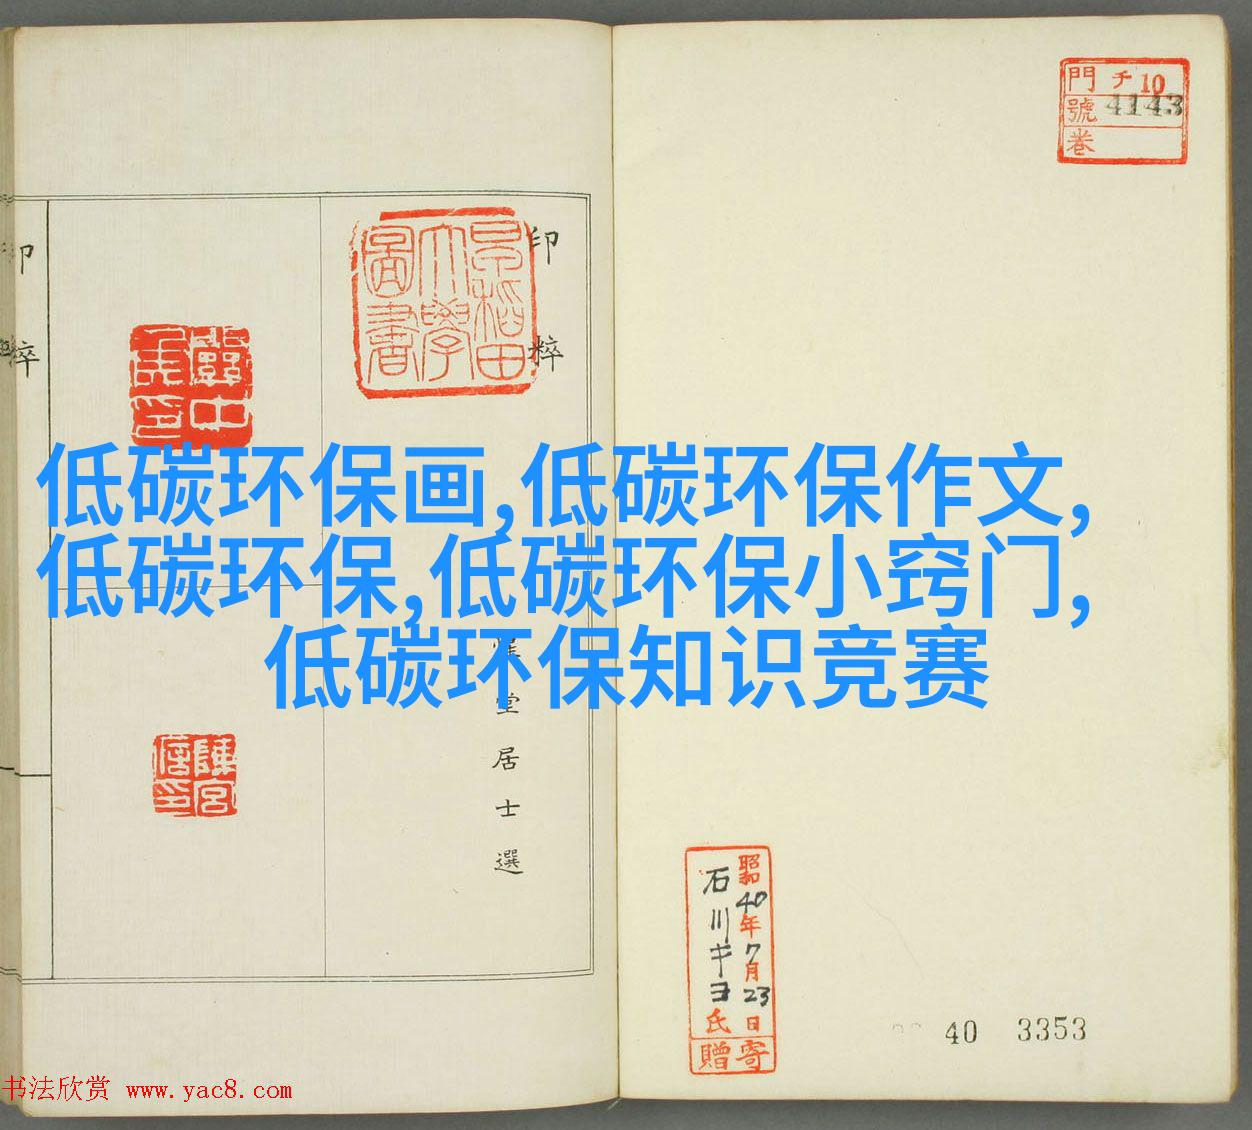 門 チ10
號 4143
卷
印粹
早稻田
大學
圖書
印粹
低碳环保画,低碳环保作文,
低碳环保,低碳环保小窍门,
低碳环保知识竞赛
堂居士選
陳宮
信印
昭和40年7月23日
石川キヨ氏
寄贈
40 3353
书法欣赏 www.yac8.com